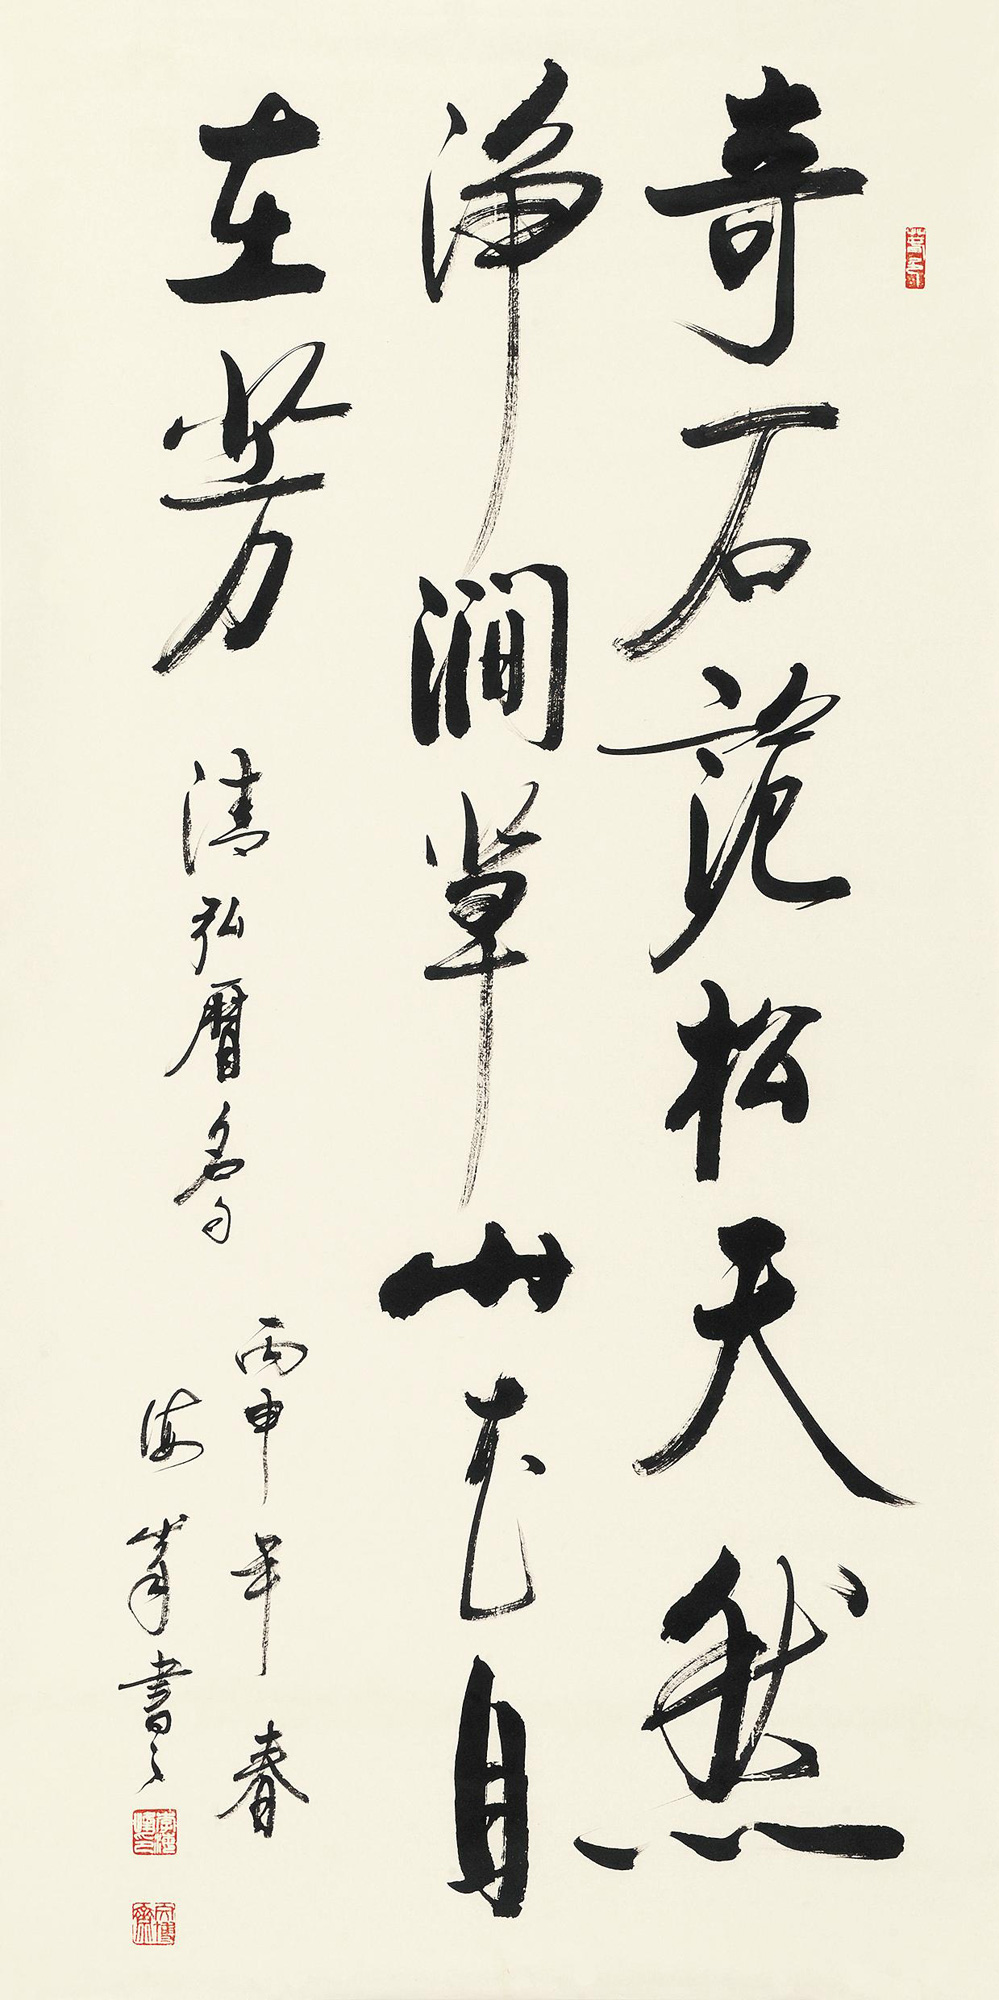 奇石蒼松天然
淨澗草山花自
在芳
清弘曆名句
丙申年春
海峯書